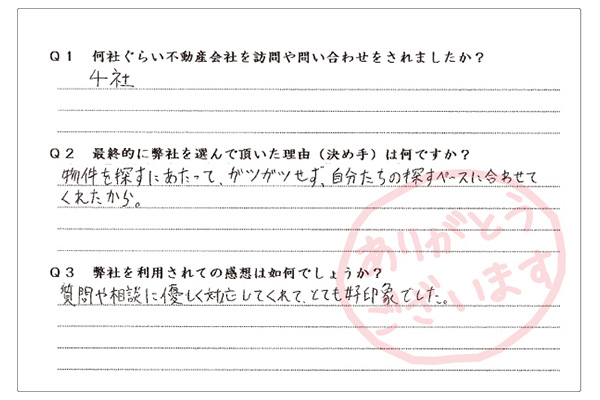 Q1 何社ぐらい不動産会社を訪問や問い合わせをされましたか？
4社
Q2 最終的に弊社を選んで頂いた理由（決め手）は何ですか？
物件を探すにあたって、ガツガツせず、自分たちの探すペースに合わせて
くれたから。
Q3 弊社を利用されての感想は如何でしょうか？
質問や相談に優しく対応してくれて、とても好印象でした。
ありがとう
ございます